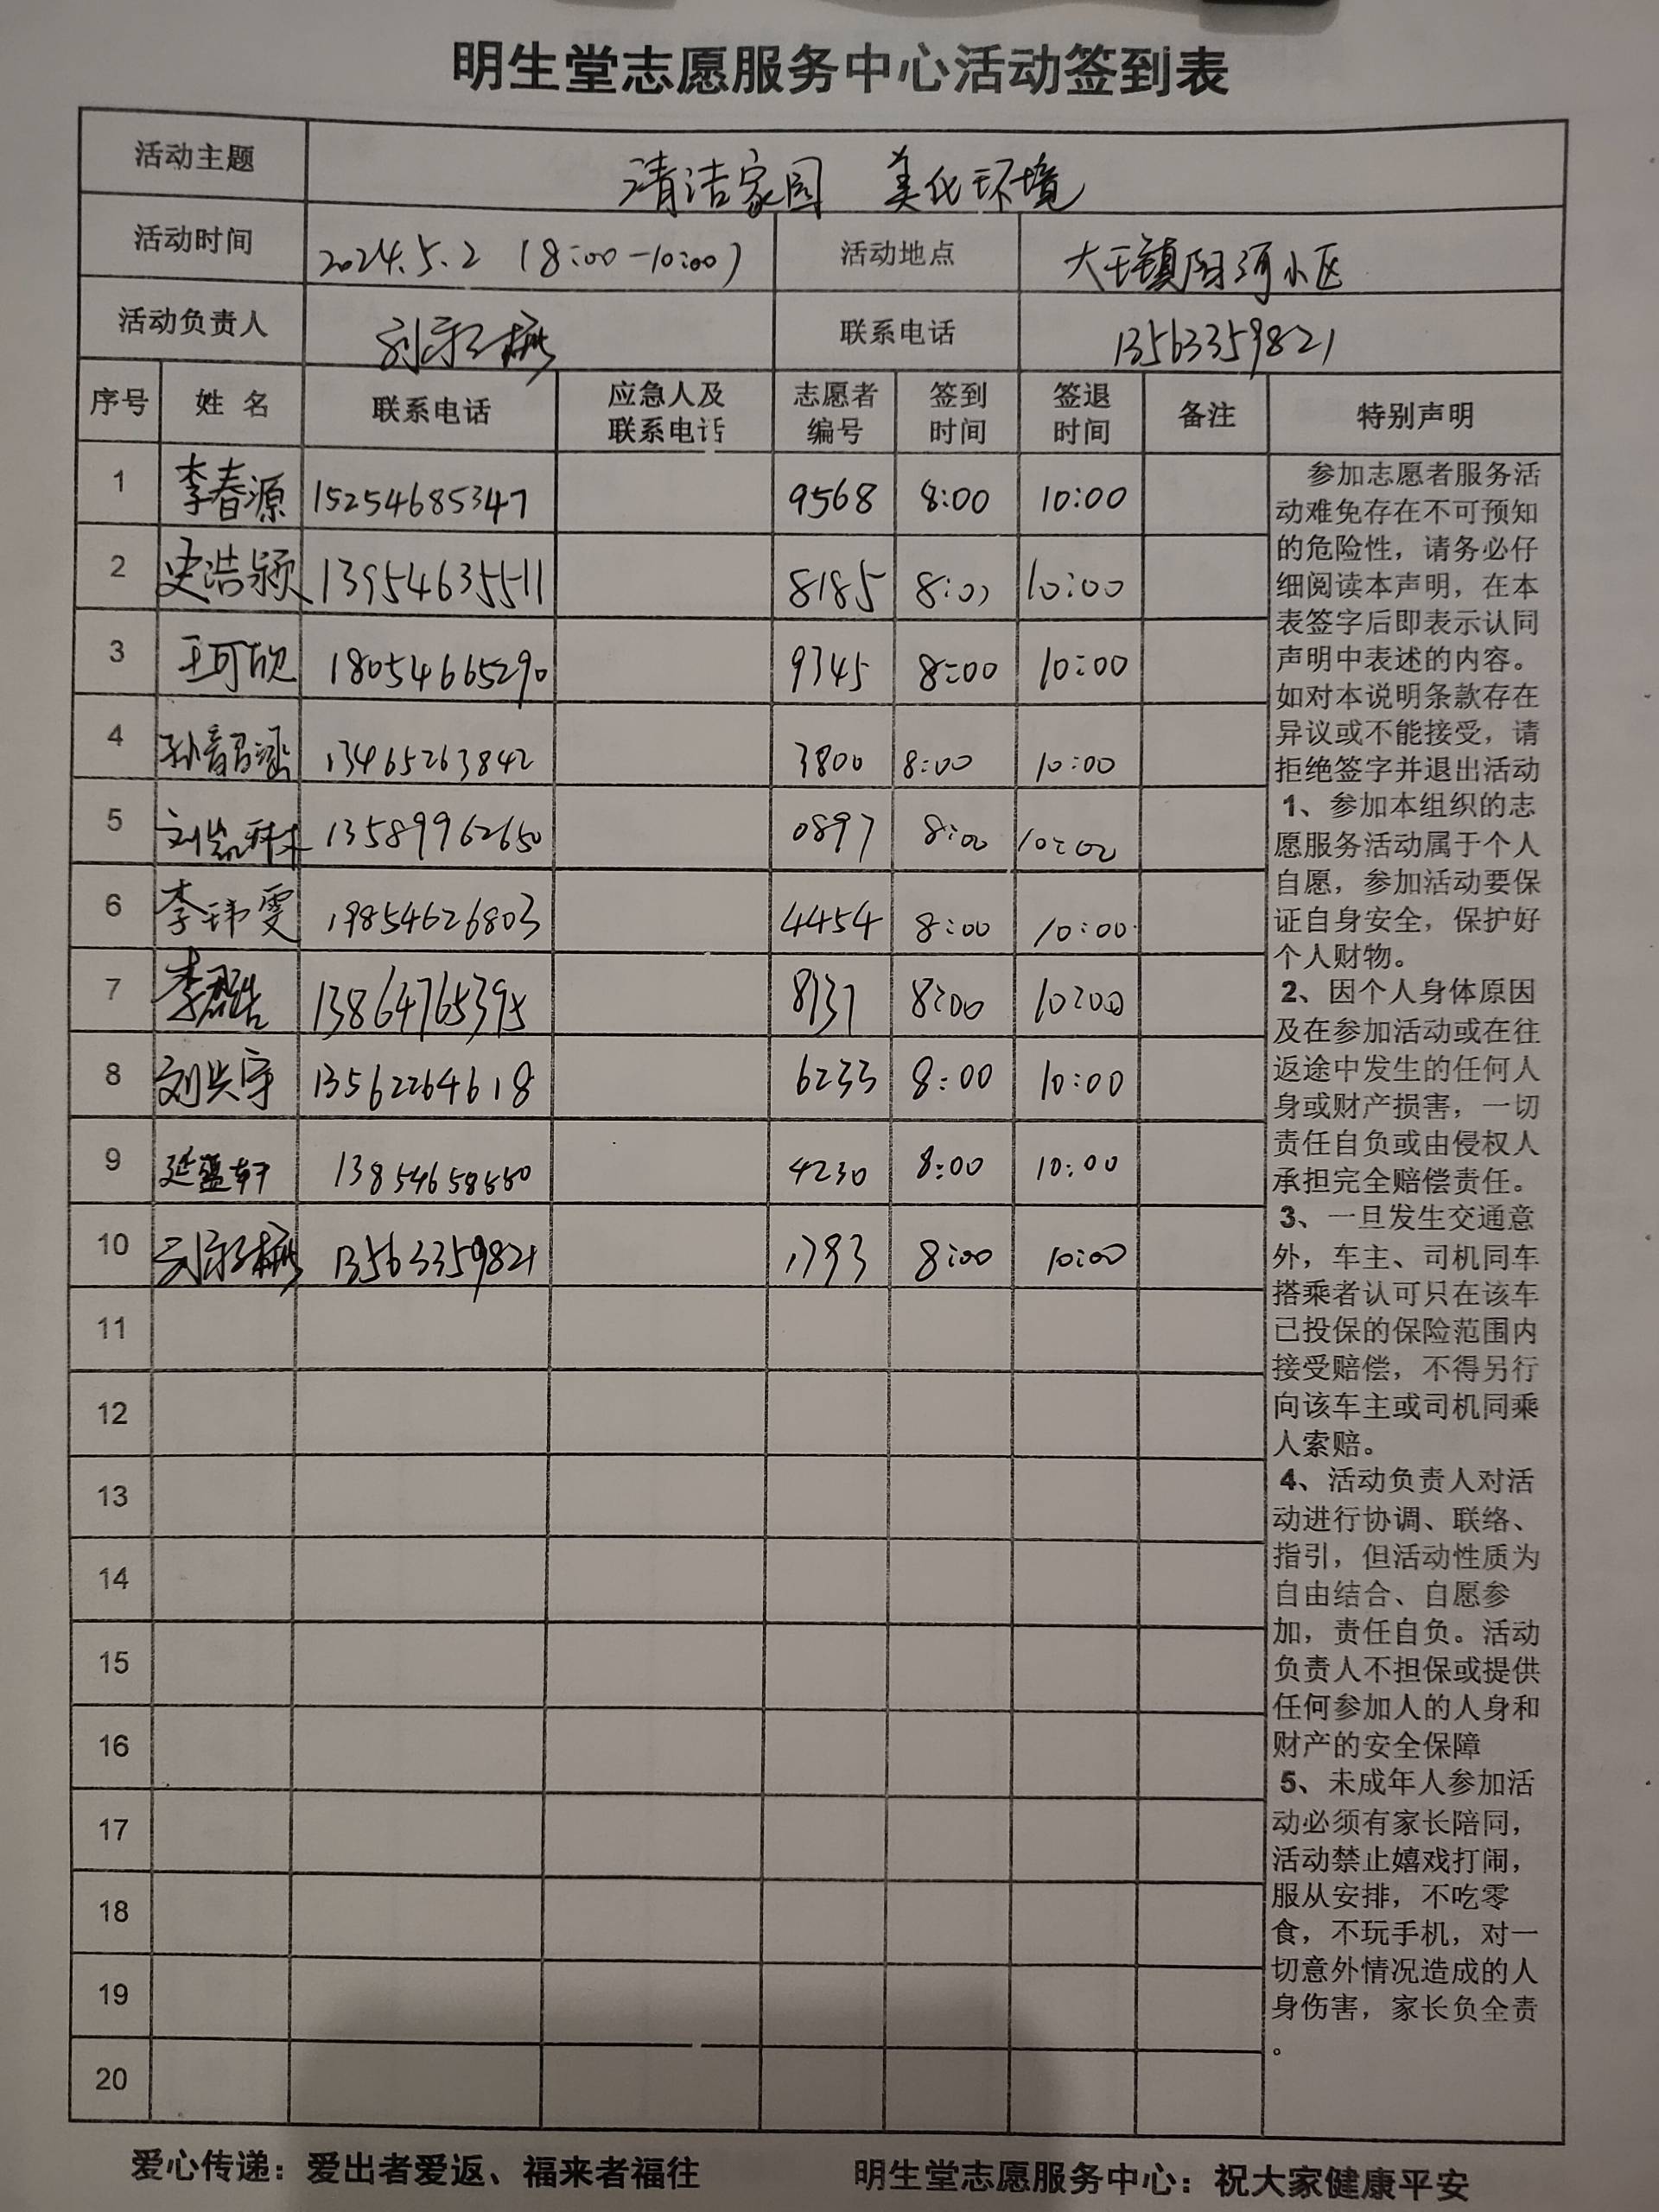 明生堂志愿服务中心活动签到表
活动主题 清洁家园 美化环境
活动时间 2024.5.2 (8:00-10:00) 活动地点 大王镇阳河小区
活动负责人 联系电话 13563359821
序号 姓名 联系电话 应急人及联系电话 志愿者编号 签到时间 签退时间 备注 特别声明
1 李春源 15254685347 9568 8:00 10:00
2 史浩颖 13954635511 8185 8:00 10:00
3 王可欣 18054665290 9345 8:00 10:00
4 13465263842 3800 8:00 10:00
5 13589962650 0897 8:00 10:00
6 李玮雯 19854626803 4454 8:00 10:00
7 李君浩 13864765395 8137 8:00 10:00
8 刘兴宇 13562264618 6233 8:00 10:00
9 延盛轩 13854658550 4230 8:00 10:00
10 13563359821 1793 8:00 10:00
11
12
13
14
15
16
17
18
19
20
参加志愿者服务活
动难免存在不可预知
的危险性，请务必仔
细阅读本声明，在本
表签字后即表示认同
声明中表述的内容。
如对本说明条款存在
异议或不能接受，请
拒绝签字并退出活动
1、参加本组织的志
愿服务活动属于个人
自愿，参加活动要保
证自身安全，保护好
个人财物。
2、因个人身体原因
及在参加活动或在往
返途中发生的任何人
身或财产损害，一切
责任自负或由侵权人
承担完全赔偿责任。
3、一旦发生交通意
外，车主、司机同车
搭乘者认可只在该车
已投保的保险范围内
接受赔偿，不得另行
向该车主或司机同乘
人索赔。
4、活动负责人对活
动进行协调、联络、
指引，但活动性质为
自由结合、自愿参
加，责任自负。活动
负责人不担保或提供
任何参加人的人身和
财产的安全保障
5、未成年人参加活
动必须有家长陪同，
活动禁止嬉戏打闹，
服从安排，不吃零
食，不玩手机，对一
切意外情况造成的人
身伤害，家长负全责
。
爱心传递：爱出者爱返、福来者福往 明生堂志愿服务中心：祝大家健康平安